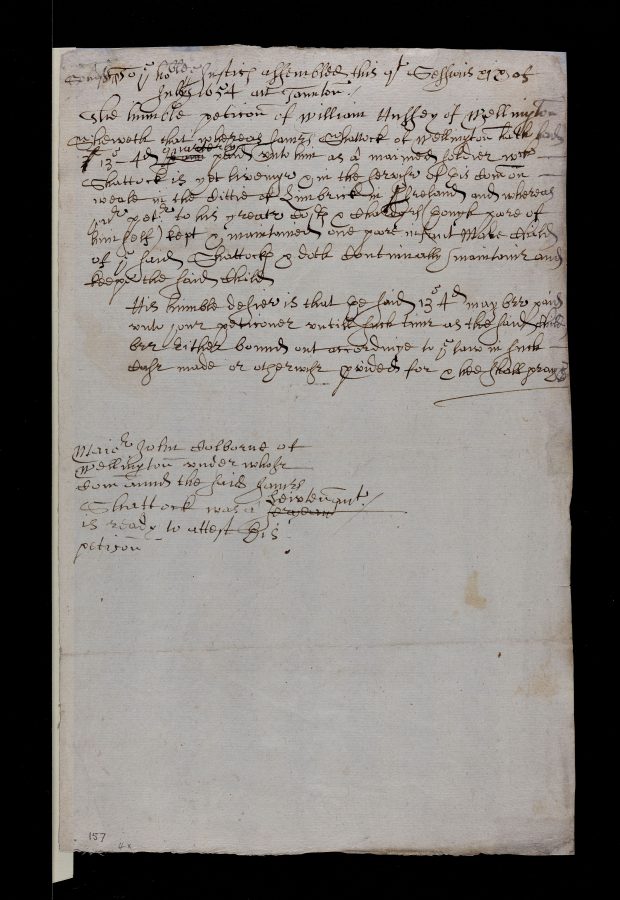 To ye hoble Justices assembled this qr Sessions xixo of
July 1654 att Taunton
The humble peticon of William Hussey of Wellington
Sheweth that whereas James Shattock of Wellington hath
13s - 4d quarterly paid unto him as a maimed soldier wch
Shattock is yet liveinge & in the service of his Comon
weale in the Cittie of Limbrick in Ireland and whereas
yor petr to his greate Cost & Chardges (poore of
himself) kept & maintained one poore infant Male Child
of ye said Shattocks & doth Continually maintaine and
keepe the said Child
His humble desier is that the said 13s 4d may bee paid
unto your peticoner untill such time as the said Child
bee either bound out accordinge to ye law in such
Case made or otherwise pvided for & hee shall pray &c
Maior John Colborne of
Wellington under whose
Comaund the said James
Shattock was a Leiutenant
is ready to attest this
peticon
157
4x